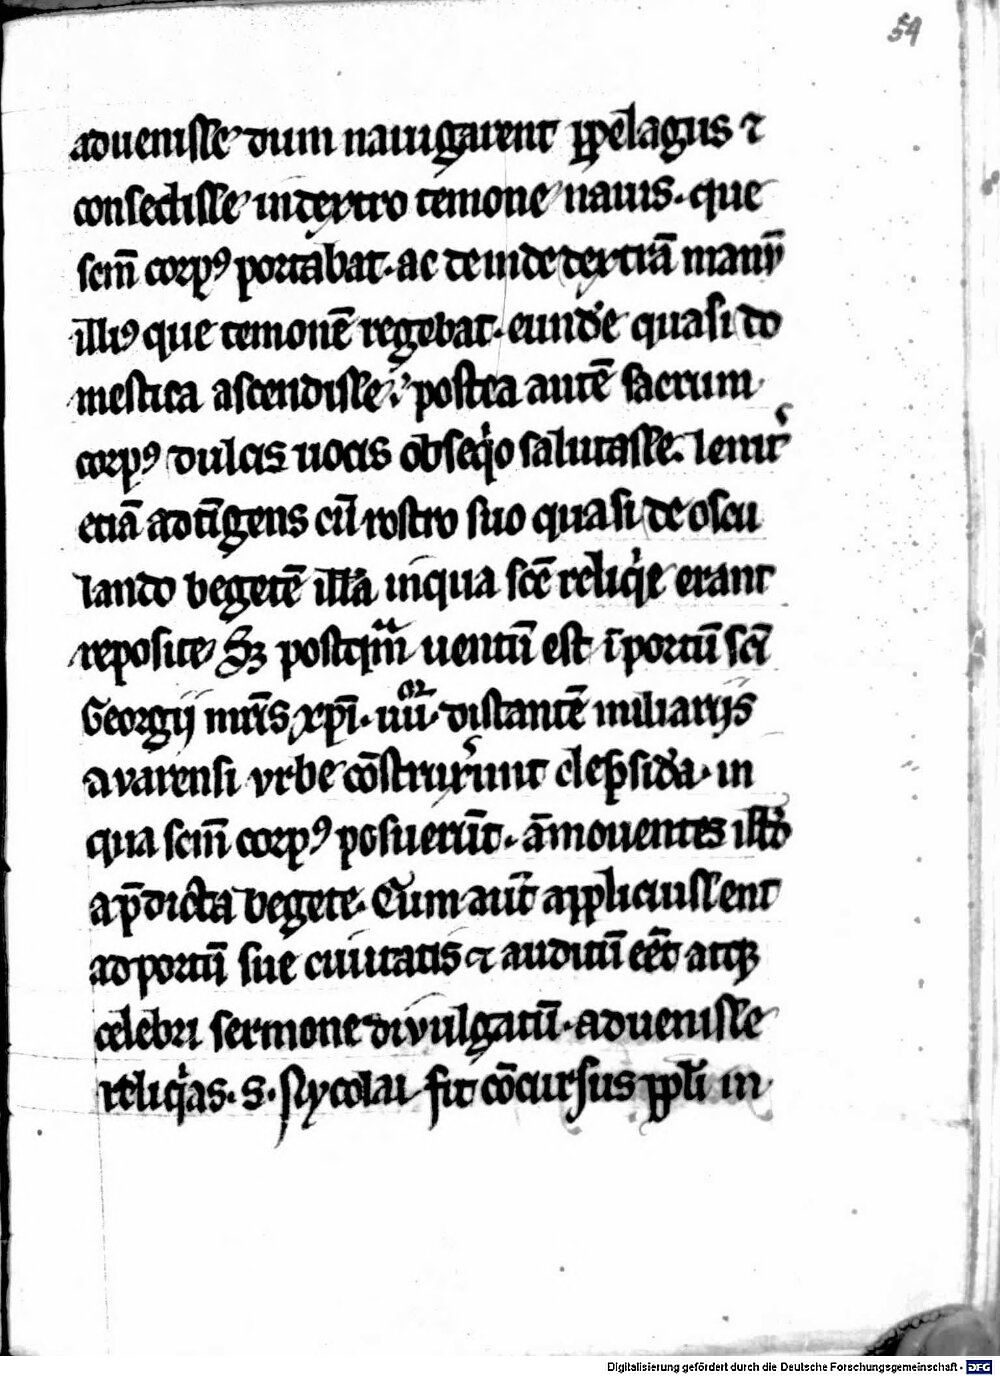 54
aduenisse dum nauigarent ꝑ pelagus ⁊
consedisse in dextro temone nauis. que
scm̄ corpꝰ portabat. ac deinde dextrā manū
illiꝰ que temonē regebat. eunde quasi do
mestica ascendisse. postea autē sacrum
corpꝰ dulcis uocis obseqͥo salutasse. lenit͛
etiā adtīgens cū rostro suo quasi de oscu
lando vegetē illā in qua scē reliqͥe erant
reposite S3 postqᵃm uentū est ī portū sc̄i
Georgij mr̄is xp̄i. iiiiᵒʳ. distantē miliarijs
a varensi vrbe cōstruxer̄unt clepsidᵃ. in
qua scm̄ corpꝰ posuerūt. āmouentes illᵈ
a p̄dicta vegete. Cum aut̄ applicuissent
ad portū sue ciuitatis ⁊ auditū eēt atqꝫ
celebri sermone divulgatū. aduenisse
reliqͥas. s. Nycolai fit cōcursus ppl̄i in
Digitalisierung gefördert durch die Deutsche Forschungsgemeinschaft - DFG